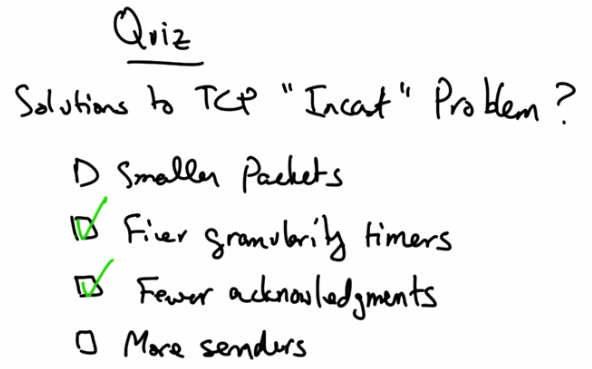 Quiz
Solutions to TCP "Incast" Problem?
Smaller Packets
Finer granularity timers
Fewer acknowledgments
More senders